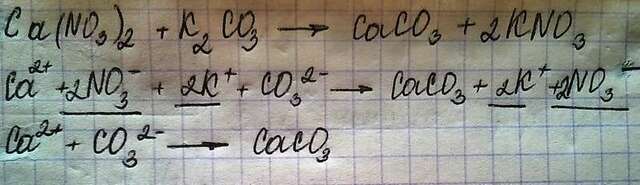 Ca(NO₃)₂ + K₂CO₃ → CaCO₃ + 2KNO₃
Ca²⁺ + 2NO₃⁻ + 2K⁺ + CO₃²⁻ → CaCO₃ + 2K⁺ + 2NO₃⁻
Ca²⁺ + CO₃²⁻ → CaCO₃